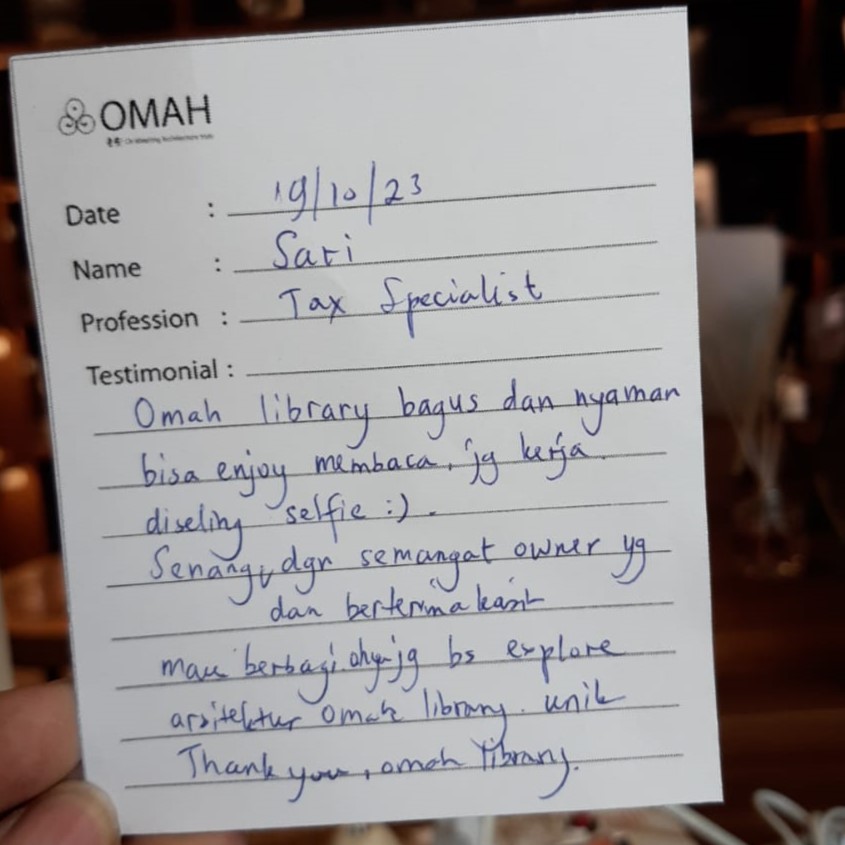 OMAH
Date : 19/10/23
Name : Sari
Profession : Tax Specialist
Testimonial :
Omah library bagus dan nyaman
bisa enjoy membaca, jg kerja.
diseling selfie :).
Senang dgn semangat owner yg
dan berterima kasih
mau berbagi jg bs explore
arsitektur Omah library. unik
Thank you, omah library.